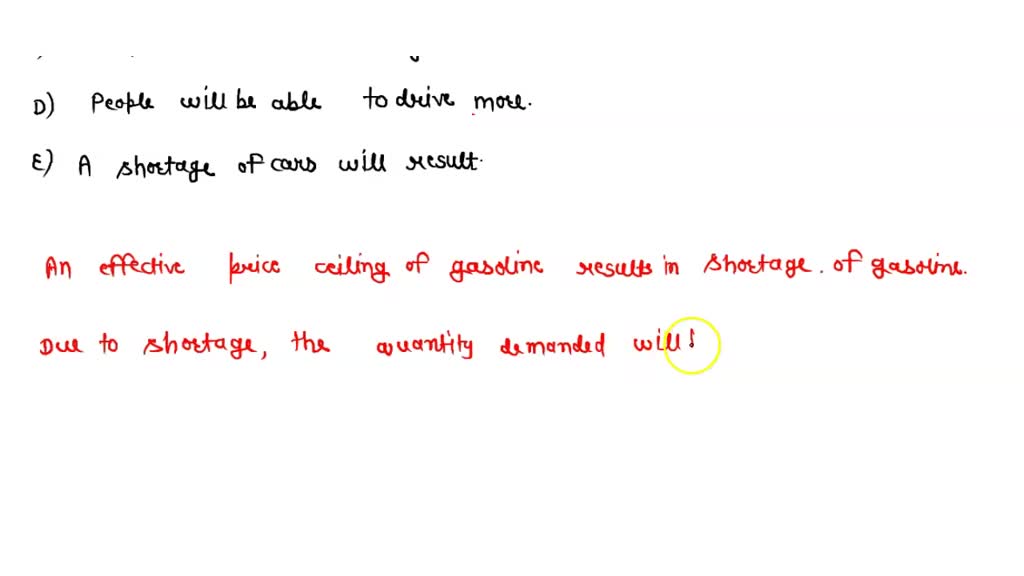 D) People will be able to drive more.
E) A shortage of cars will result.
An effective price ceiling of gasoline results in shortage. of gasoline.
Due to shortage, the quantity demanded will